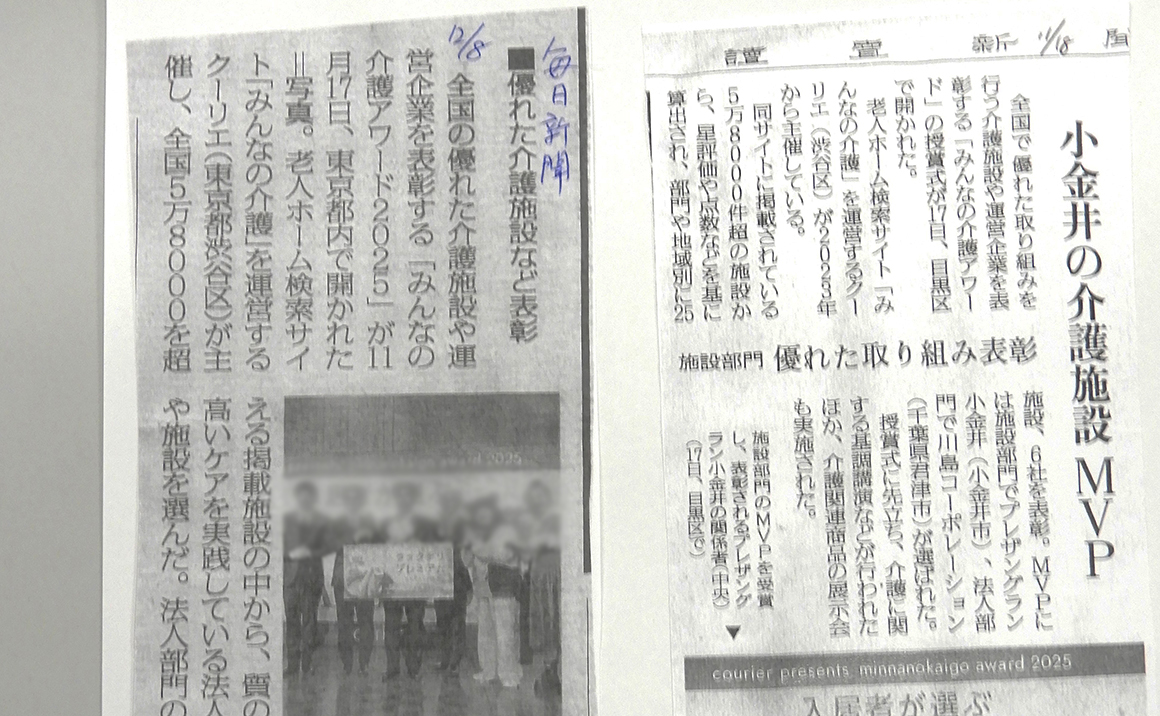 讀賣新聞
11/18
小金井の介護施設 MVP
施設部門 優れた取り組み表彰
全国で優れた取り組みを
行う介護施設や運営企業を表
彰する「みんなの介護アワー
ド」の授賞式が17日、目黒区
で開かれた。
老人ホーム検索サイト「み
んなの介護」を運営するクー
リエ（渋谷区）が2023年
から主催している。
同サイトに掲載されている
5万8000件超の施設か
ら、星評価や点数などを基に
算出され、部門や地域別に25
施設、6社を表彰。MVPに
は施設部門でプレザングラン
小金井（小金井市）、法人部
門で川島コーポレーション
（千葉県君津市）が選ばれた。
授賞式に先立ち、介護に関
する基調講演などが行われた
ほか、介護関連商品の展示会
も実施された。
施設部門のMVPを受賞
し、表彰されるプレザング
ラン小金井の関係者（中央）
（17日、目黒区で）
▼
courier presents minnanokaigo award 2025
入居者が選ぶ
毎日新聞
12/8
■優れた介護施設など表彰
全国の優れた介護施設や運
営企業を表彰する「みんなの
介護アワード2025」が11
月17日、東京都内で開かれた
＝写真。老人ホーム検索サイ
ト「みんなの介護」を運営する
クーリエ（東京都渋谷区）が主
催し、全国5万8000を超
える掲載施設の中から、質の
高いケアを実践している法人
や施設を選んだ。法人部門の